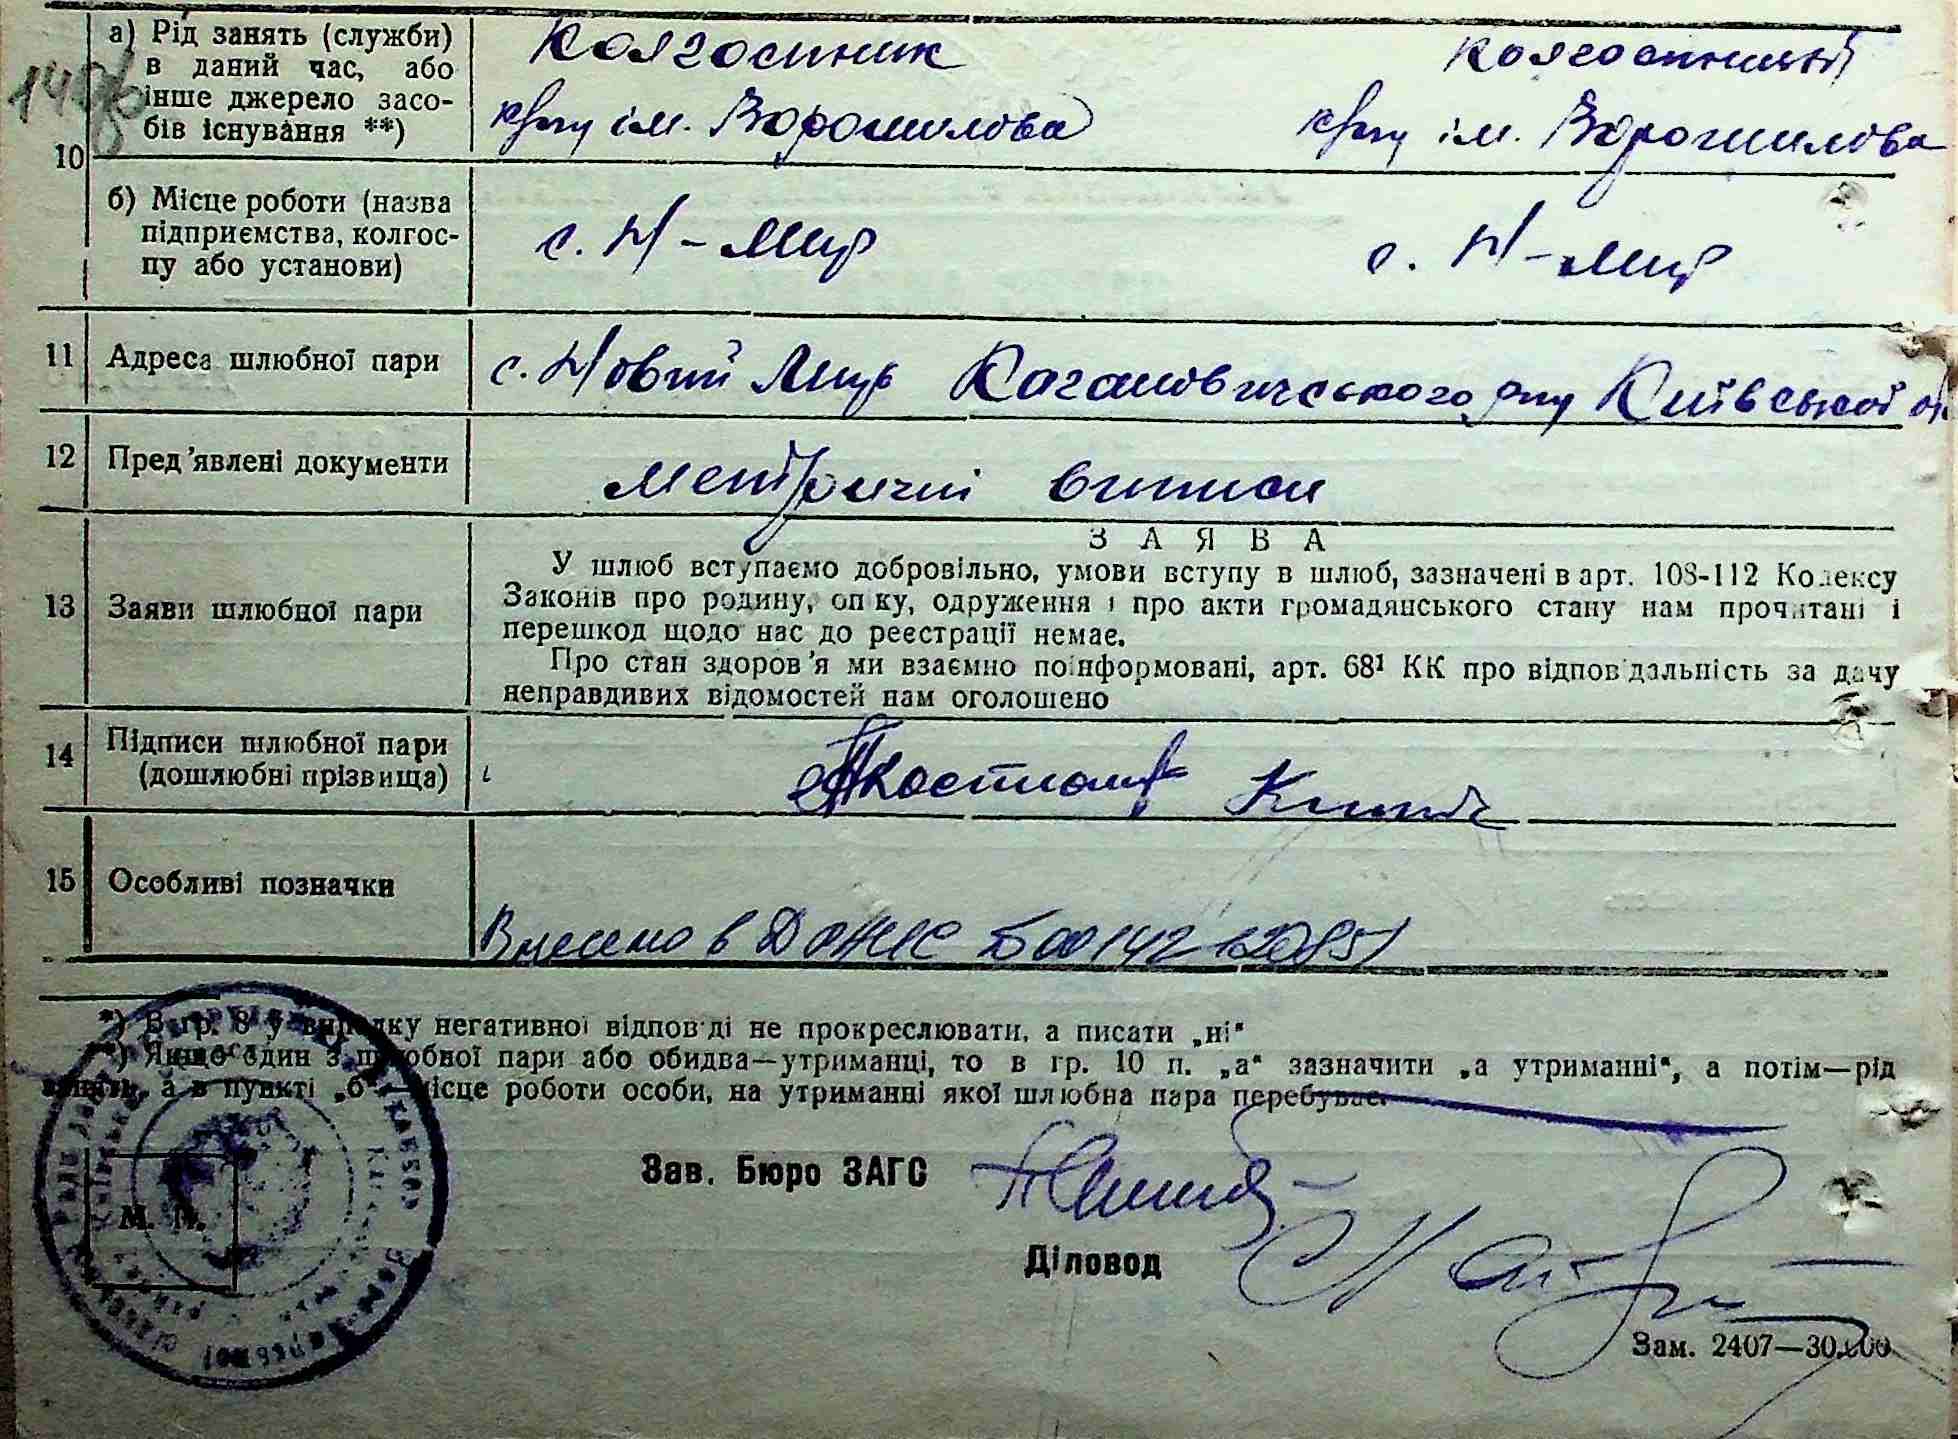 10
а) Рід занять (служби) в даний час, або інше джерело засо-
бів існування **)
Колгоспник Колгоспниця
к-госпу ім. Ворошилова к-госпу ім. Ворошилова
б) Місце роботи (назва
підприємства, колгос-
пу або установи)
с. Н-Мир с. Н-Мир
11 Адреса шлюбної пари с. Новий Мир Кагановичського р-ну Київської об
12 Пред'явлені документи метричні виписи
З А Я В А
13 Заяви шлюбної пари
У шлюб вступаємо добровільно, умови вступу в шлюб, зазначені в арт. 108-112 Кодексу
Законів про родину, опіку, одруження і про акти громадянського стану нам прочитані і
перешкод щодо нас до реєстрації немає.
Про стан здоров'я ми взаємно поінформовані, арт. 68¹ КК про відповідальність за дачу
неправдивих відомостей нам оголошено
14 Підписи шлюбної пари
(дошлюбні прізвища)
15 Особливі позначки
Внесено в ДРАЦС
*) В гр. 8 у випадку негативної відповіді не прокреслювати, а писати „ні“
**) Якщо один з шлюбної пари або обидва—утриманці, то в гр. 10 п. „а“ зазначити „а утриманні“, а потім—рід
занять, а в пункті „б“—місце роботи особи, на утриманні якої шлюбна пара перебуває.
Зав. Бюро ЗАГС
М. П.
Діловод
Зам. 2407—30.000